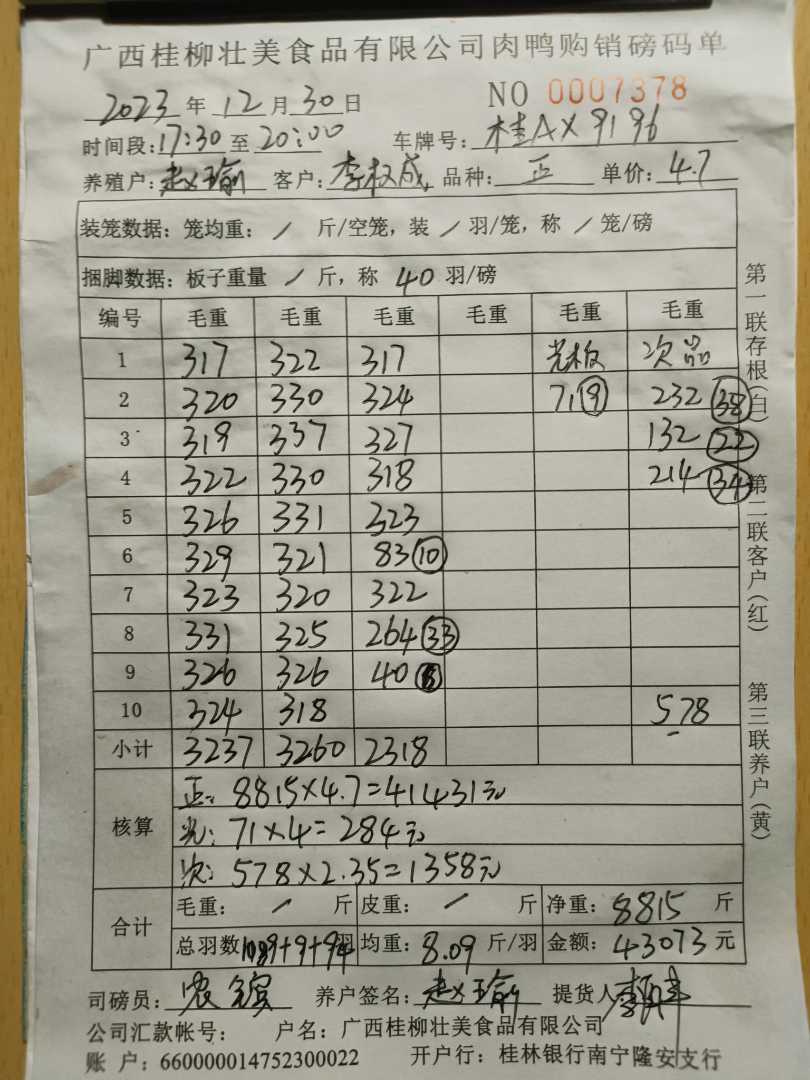 广西桂柳壮美食品有限公司肉鸭购销磅码单
2023年12月30日 NO 0007378
时间段:17:30至20:00 车牌号:桂AX9196
养殖户:赵瑜 客户:李权成 品种:正 单价:4.7
装笼数据:笼均重: / 斤/空笼,装 / 羽/笼,称 / 笼/磅
捆脚数据:板子重量 / 斤,称 40 羽/磅
编号 毛重 毛重 毛重 毛重 毛重 毛重
1 317 322 317 光板 次品
2 320 330 324 71 9 232 38
3 319 337 327 132 22
4 322 330 318 214 34
5 326 331 323
6 329 321 83 10
7 323 320 322
8 331 325 264 33
9 326 326 40
10 324 318 578
小计 3237 3260 2318
核算
正: 8815×4.7=41431元
光: 71×4=284元
次: 578×2.35=1358元
合计
毛重: / 斤 皮重: / 斤 净重: 8815 斤
总羽数 1089+9+94 羽 均重: 8.09 斤/羽 金额: 43073 元
司磅员: 养户签名: 赵瑜 提货人
公司汇款帐号: 户名:广西桂柳壮美食品有限公司
账 户:660000014752300022 开户行:桂林银行南宁隆安支行
第一联存根(白) 第二联客户(红) 第三联养户(黄)